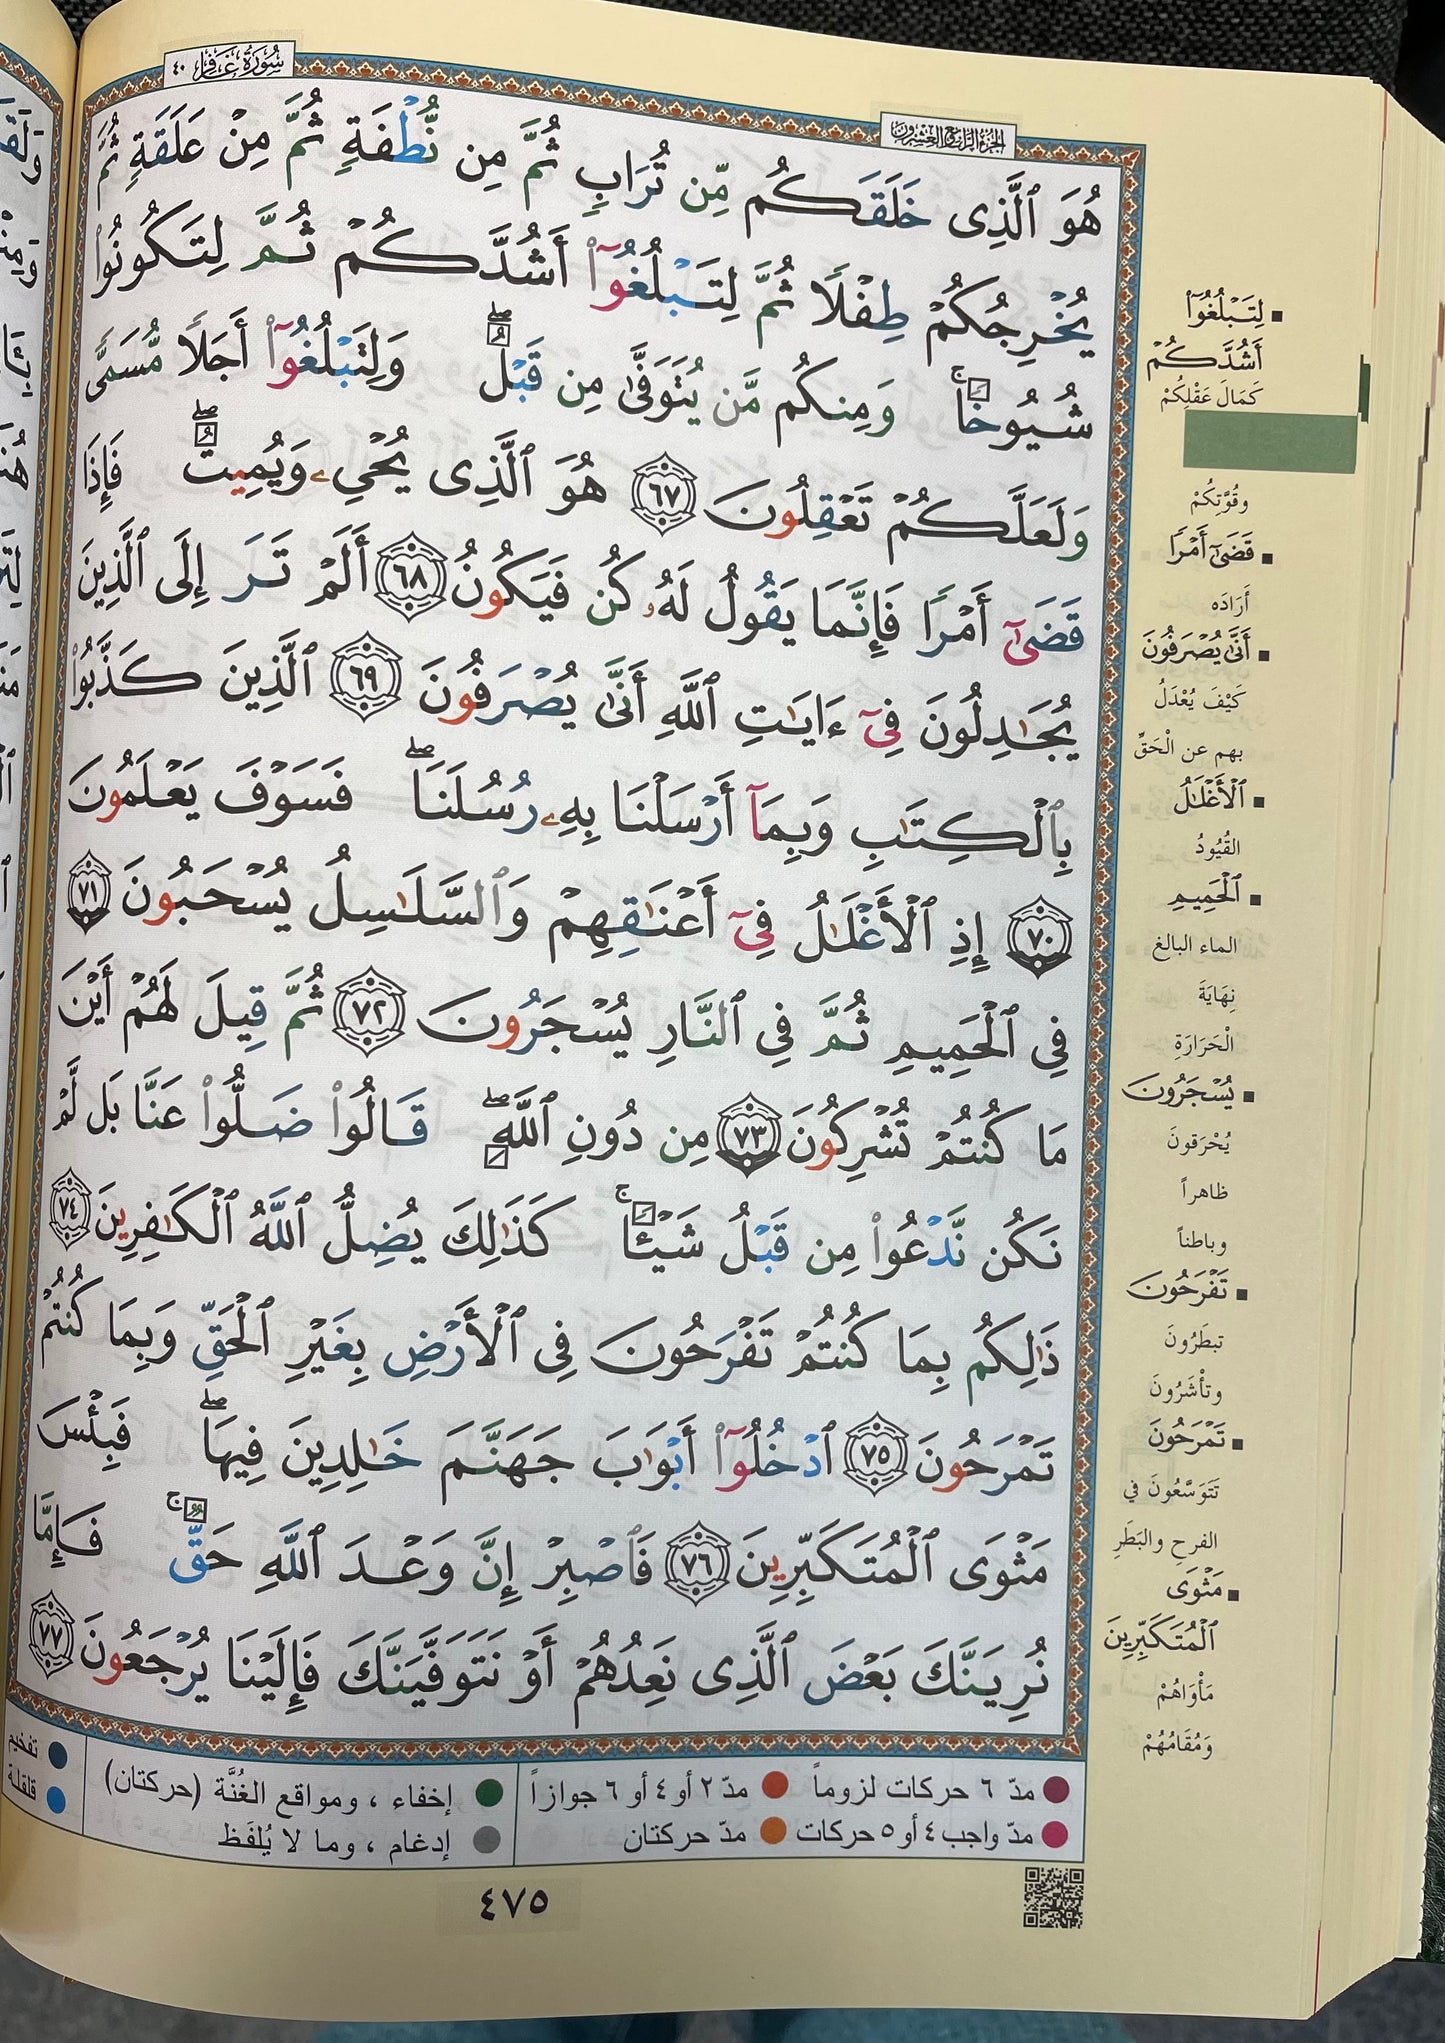 سُورَةُ غَافِر ٤٠
الجزء الرابع والعشرون
هُوَ ٱلَّذِى خَلَقَكُم مِّن تُرَابٍ ثُمَّ مِن نُّطْفَةٍ ثُمَّ مِنْ عَلَقَةٍ ثُمَّ
يُخْرِجُكُمْ طِفْلًا ثُمَّ لِتَبْلُغُوٓا۟ أَشُدَّكُمْ ثُمَّ لِتَكُونُوا۟
شُيُوخًا ۚ وَمِنكُم مَّن يُتَوَفَّىٰ مِن قَبْلُ ۖ وَلِتَبْلُغُوٓا۟ أَجَلًا مُّسَمًّى
وَلَعَلَّكُمْ تَعْقِلُونَ ٦٧ هُوَ ٱلَّذِى يُحْىِۦ وَيُمِيتُ ۖ فَإِذَا
قَضَىٰٓ أَمْرًا فَإِنَّمَا يَقُولُ لَهُۥ كُن فَيَكُونُ ٦٨ أَلَمْ تَرَ إِلَى ٱلَّذِينَ
يُجَـٰدِلُونَ فِىٓ ءَايَـٰتِ ٱللَّهِ أَنَّىٰ يُصْرَفُونَ ٦٩ ٱلَّذِينَ كَذَّبُوا۟
بِٱلْكِتَـٰبِ وَبِمَآ أَرْسَلْنَا بِهِۦ رُسُلَنَا ۖ فَسَوْفَ يَعْلَمُونَ
٧٠ إِذِ ٱلْأَغْلَـٰلُ فِىٓ أَعْنَـٰقِهِمْ وَٱلسَّلَـٰسِلُ يُسْحَبُونَ ٧١
فِى ٱلْحَمِيمِ ثُمَّ فِى ٱلنَّارِ يُسْجَرُونَ ٧٢ ثُمَّ قِيلَ لَهُمْ أَيْنَ
مَا كُنتُمْ تُشْرِكُونَ ٧٣ مِن دُونِ ٱللَّهِ ۖ قَالُوا۟ ضَلُّوا۟ عَنَّا بَل لَّمْ
نَكُن نَّدْعُوا۟ مِن قَبْلُ شَيْـًٔا ۚ كَذَٰلِكَ يُضِلُّ ٱللَّهُ ٱلْكَـٰفِرِينَ ٧٤
ذَٰلِكُم بِمَا كُنتُمْ تَفْرَحُونَ فِى ٱلْأَرْضِ بِغَيْرِ ٱلْحَقِّ وَبِمَا كُنتُمْ
تَمْرَحُونَ ٧٥ ٱدْخُلُوٓا۟ أَبْوَٰبَ جَهَنَّمَ خَـٰلِدِينَ فِيهَا ۖ فَبِئْسَ
مَثْوَى ٱلْمُتَكَبِّرِينَ ٧٦ فَٱصْبِرْ إِنَّ وَعْدَ ٱللَّهِ حَقٌّ ۚ فَإِمَّا
نُرِيَنَّكَ بَعْضَ ٱلَّذِى نَعِدُهُمْ أَوْ نَتَوَفَّيَنَّكَ فَإِلَيْنَا يُرْجَعُونَ ٧٧
■ لِتَبْلُغُوٓا۟
أَشُدَّكُمْ
كَمَالَ عَقْلِكُمْ
وقُوَّتِكُمْ
■ قَضَىٰٓ أَمْرًا
أَرَادَه
■ أَنَّىٰ يُصْرَفُونَ
كَيْفَ يُعْدَلُ
بهم عن الْحَقِّ
■ ٱلْأَغْلَـٰلُ
القُيُودُ
■ ٱلْحَمِيمِ
الماء البالغ
نِهَايَةَ
الْحَرَارَةِ
■ يُسْجَرُونَ
يُحْرَقونَ
ظاهراً
وباطناً
■ تَفْرَحُونَ
تبطَرُونَ
وتأْشَرُونَ
■ تَمْرَحُونَ
تَتَوَسَّعُونَ في
الفرحِ والبَطَرِ
■ مَثْوَى
ٱلْمُتَكَبِّرِينَ
مَأْوَاهُمْ
وَمُقَامُهُمْ
مدّ ٦ حركات لزوماً
مدّ ٢ أو ٤ أو ٦ جوازاً
إخفاء ، ومواقع الغُنَّة (حركتان)
تفخيم
مدّ واجب ٤ أو ٥ حركات
مدّ حركتان
إدغام ، وما لا يُلفَظ
قلقلة
٤٧٥